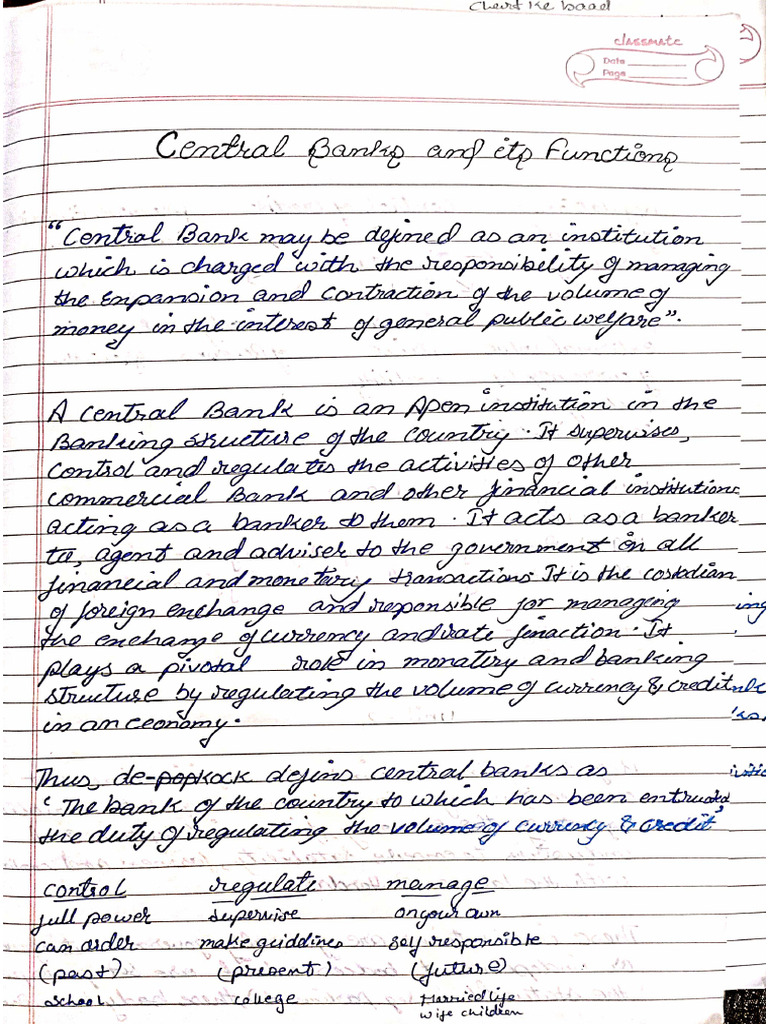 Chart ke baad
classmate
Date
Page
Central Banks and its Functions
"Central Bank may be defined as an institution
which is charged with the responsibility of managing
the Expansion and contraction of the volume of
money in the interest of general public welfare".
A central Bank is an Apen institution in the
Banking structure of the country. It supervises,
control and regulates the activities of other
commercial Bank and other financial institutions
acting as a banker to them. It acts as a banker
to, agent and adviser to the government on all
financial and monetary transactions. It is the custodian
of foreign exchange and responsible for managing
the exchange of currency and rate finaction. It
plays a pivotal role in monatery and banking
structure by regulating the volume of currency & credit
in an ceonomy.
Thus, de-popkock defins central banks as
'The bank of the country to which has been entrusted
the duty of regulating the volume of currency & credit'
control regulate manage
full power supervise on your own
can order make guidlines self responsible
(past) (present) (future)
school college Married life
wife children